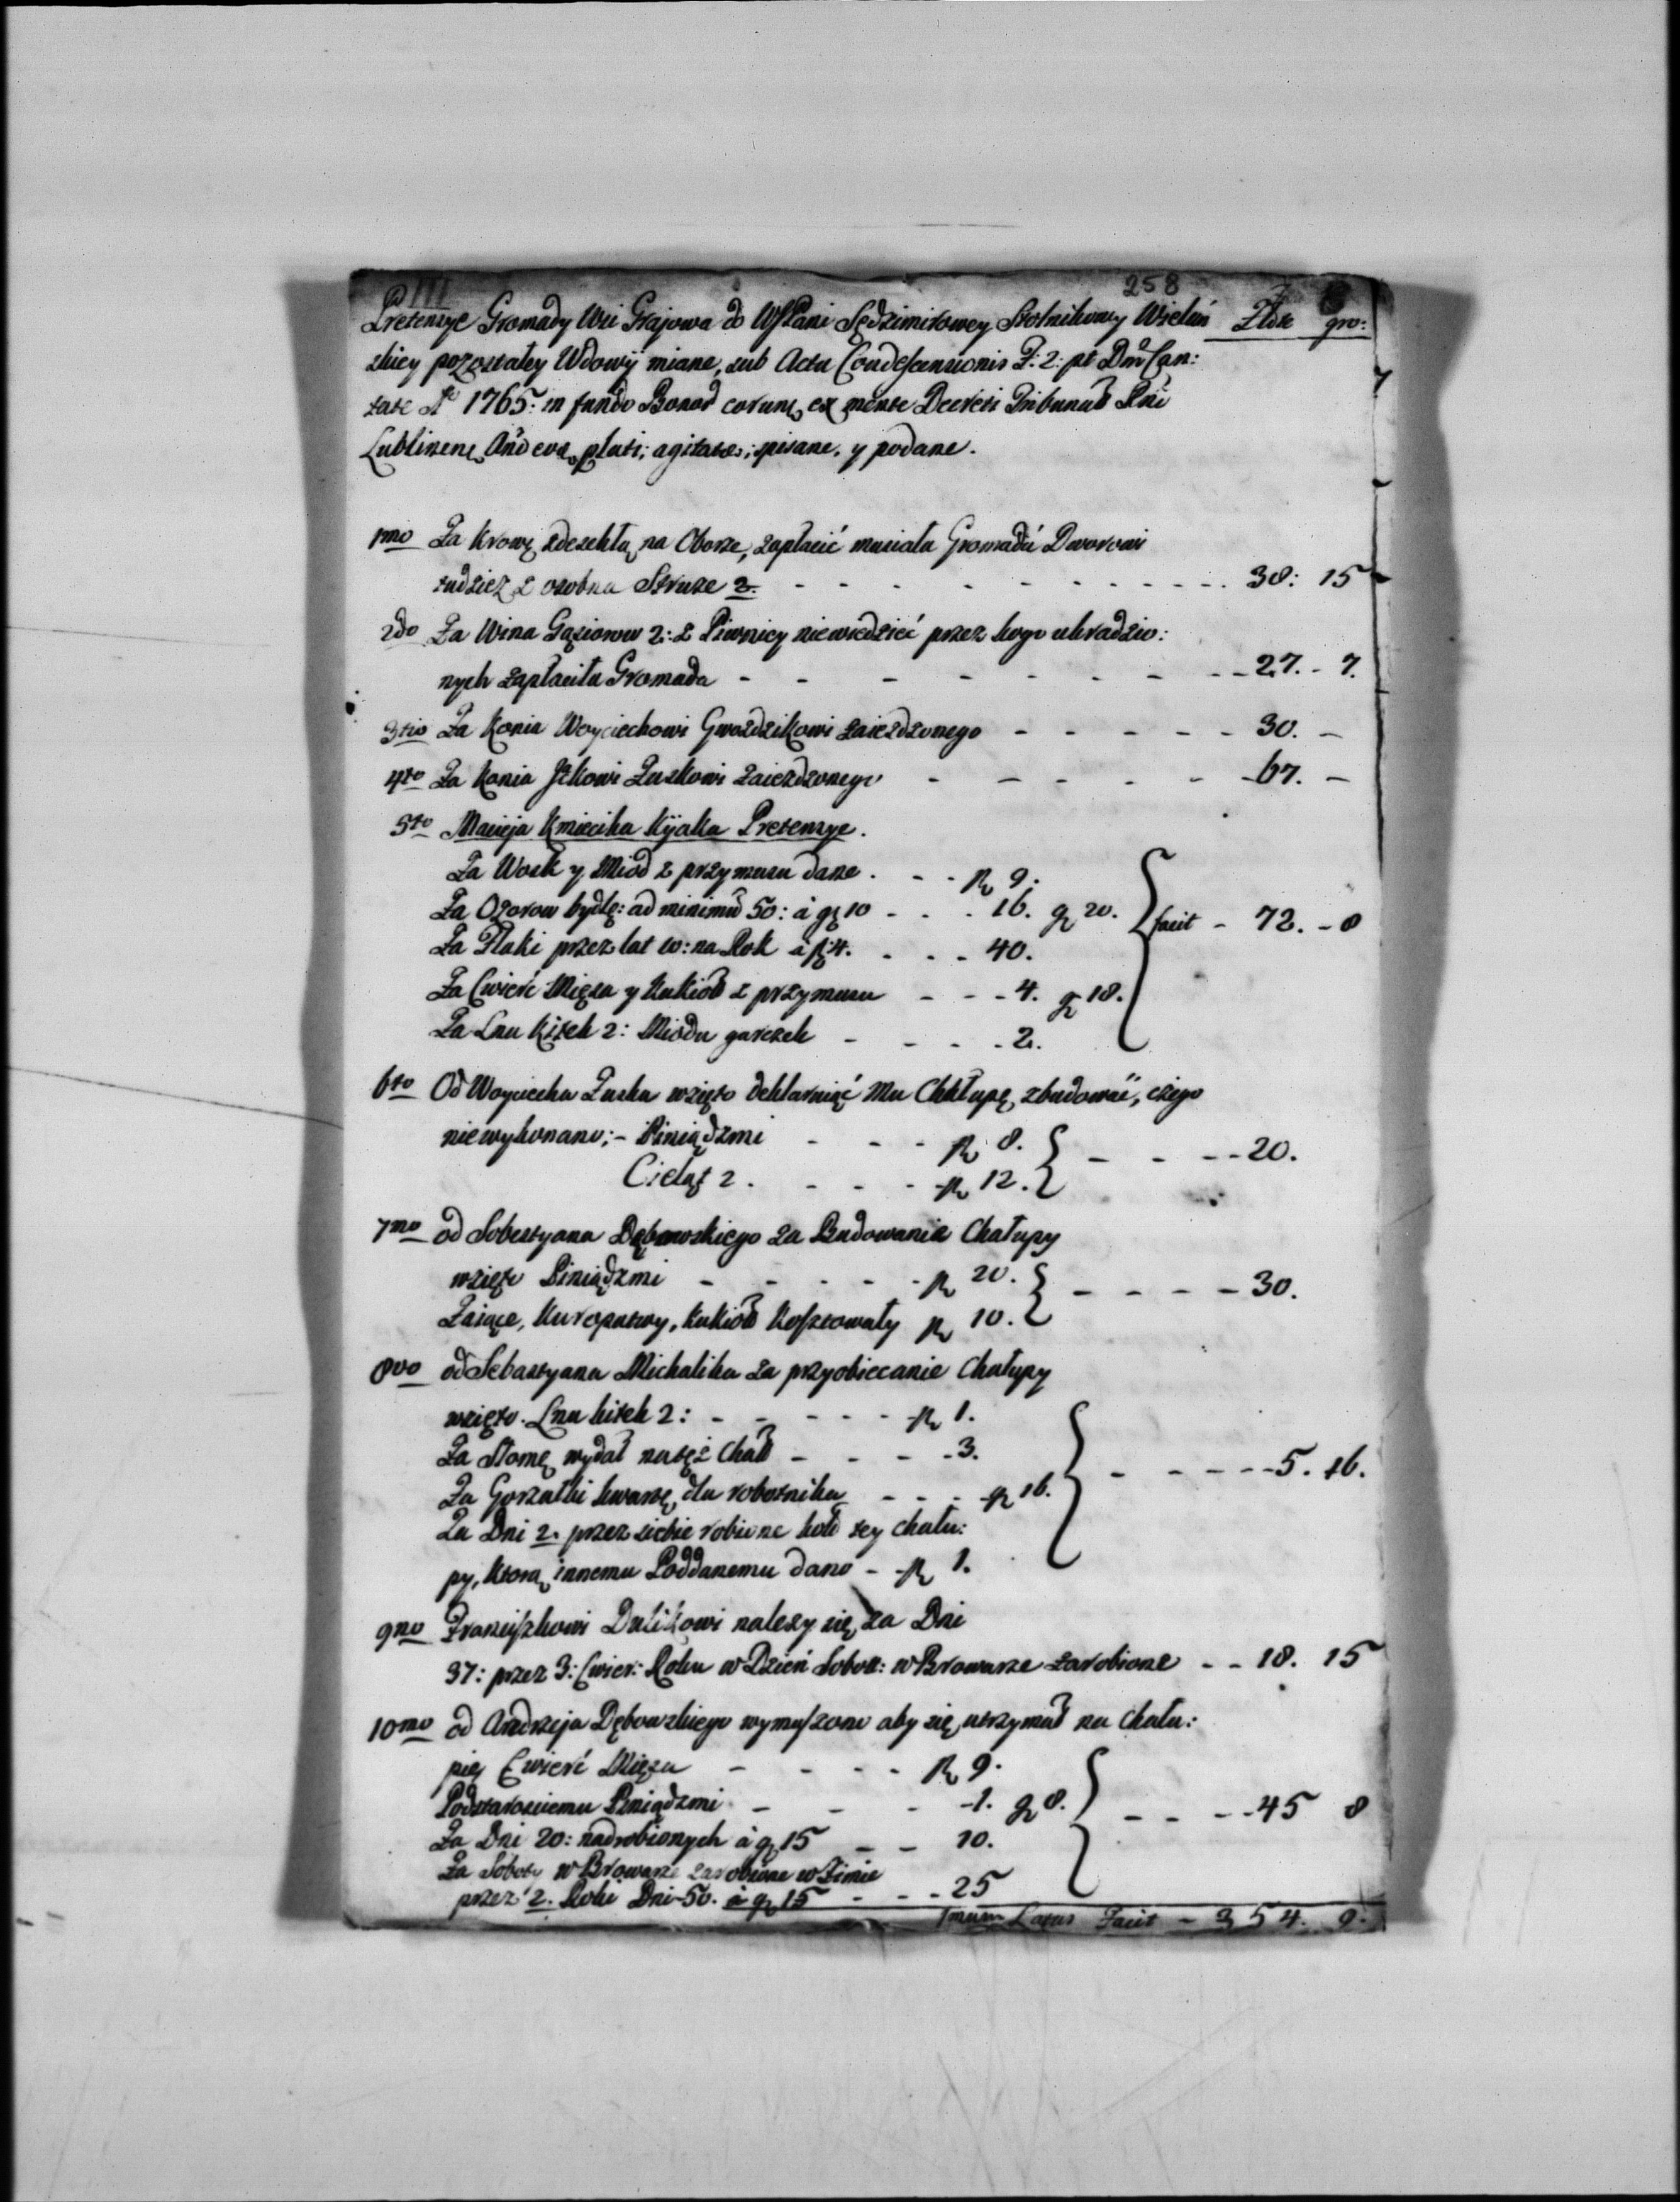 III 258
Pretensye Gromady Wsi Grajowa do WJPani Sędzimirowey Stolnikowy Wieluń Złote gro:
skiey pozostałey Wdowy miane, sub Actu Condescensionis F. 2: pt Dnī Can:
tate Aº 1765: in fundo Bonor̃ corund ex mente Decreti Tribunal Rñi
Lublinens Año eod plati; agitatæ; spisane, y podane.
1mo Za Krowę zdechłą na Oborze, zapłacić musiała Gromada Dworowi
tudzież z osobna Struze 2. - - - 38: 15
2do Za Wina Gąsiorow 2: z Piwnicy niewiedzieć przez kogo ukradzio:
nych zapłaciła Gromada - - - 27. - 7.
3tio Za Konia Woyciechowi Gwozdzikowi zaiezdzonego - - - 30. -
4to Za Konia Zuskowi zaiezdzonego - - - 67. -
5to Macieja Kmiecika Kijaka Pretensye.
Za Wosk y Miod z przymusu dane . - - 9.
Za Ozorow bydlę: ad minimũ 50: à 10 - - . 16. 20. facit - 72. - 8
Za Flaki przez lat 10: na Rok à 4. . . . - 40.
Za Cwierć Mięsa y Kukioł z przymusu - - - 4. 18.
Za Lnu Kitek 2: Miodu garczek - - - . 2.
6to Od Woyciecha Zuska wzięto deklaruiąc mu Chałupę zbudować, czego
niewykonano; - Piniądzmi - - - 8. - - - - 20.
Cieląt 2. - - - 12.
7mo od Sobestyana Dębowskiego za Budowanie Chałupy
wzięto Piniądzmi - - - - - 20. - - - - 30.
Zaiące, Kuropatwy, Kukioł Kosztowały 10.
8vo od Sebastyana Michalika za przyobiecanie Chałupy
wzięto. Lnu kitek 2: - - - - - 1.
Za Słomę wydał na tęż Chał - - - - 3. - - - - - 5. 16.
Za Gorzałki kwartę dla robotnika - - - 16.
Za Dni 2. przez siebie robione koło tey chału:
py, Ktorą innemu Poddanemu dano - 1.
9no Franciszkowi Dulikowi nalezy się za Dni
37: przez 3: Cwier: Roku w Dzień Sobot: w Browarze zarobione - - 18. 15
10mo od Andrzeja Dębowskiego wymuszono aby się utrzymał na Chału:
pie Cwierć Mięsa - - - - 9.
Podstarosciemu Piniądzmi - - - 1. 8. - - - - 45 8
Za Dni 20: nadrobionych à 15 - - 10.
Za Soboty w Browarze zarobione w Zimie
przez 2. Roki Dni 50. à 15 - - - 25
1mum Latus Facit - 354. 9.